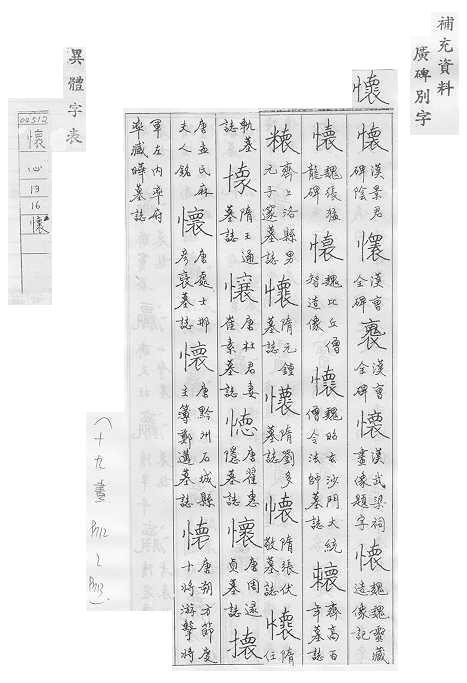 補充資料
廣碑別字
懷
懷 漢景君碑陰 懷 漢曹全碑 褱 漢曹全碑 懷 漢武梁祠畫像題字 懷 魏魏靈藏造像記
懷 魏張猛龍碑 懷 魏比丘僧智造像 懷 魏昭玄沙門大統僧令法師墓誌 齊高百年墓誌
齊上洛縣男元子邃墓誌 懷 隋元鍾墓誌 懷 隋劉多墓誌 懷 隋張伏敬墓誌 懷 隋任
軌墓誌 隋王通墓誌 懷 唐杜君妻崔素墓誌 唐翟惠隱墓誌 懷 唐周逯貞墓誌
唐孟氏麻夫人銘 懷 唐處士邢彥裒墓誌 懷 唐黔州石城縣主簿鄭邁墓誌 懷 唐朔方節度十將游擊將
軍左內率府率臧曄墓誌
異體字表
04512
懷
心
19
16
懷
(十九畫 P.712~P.713)